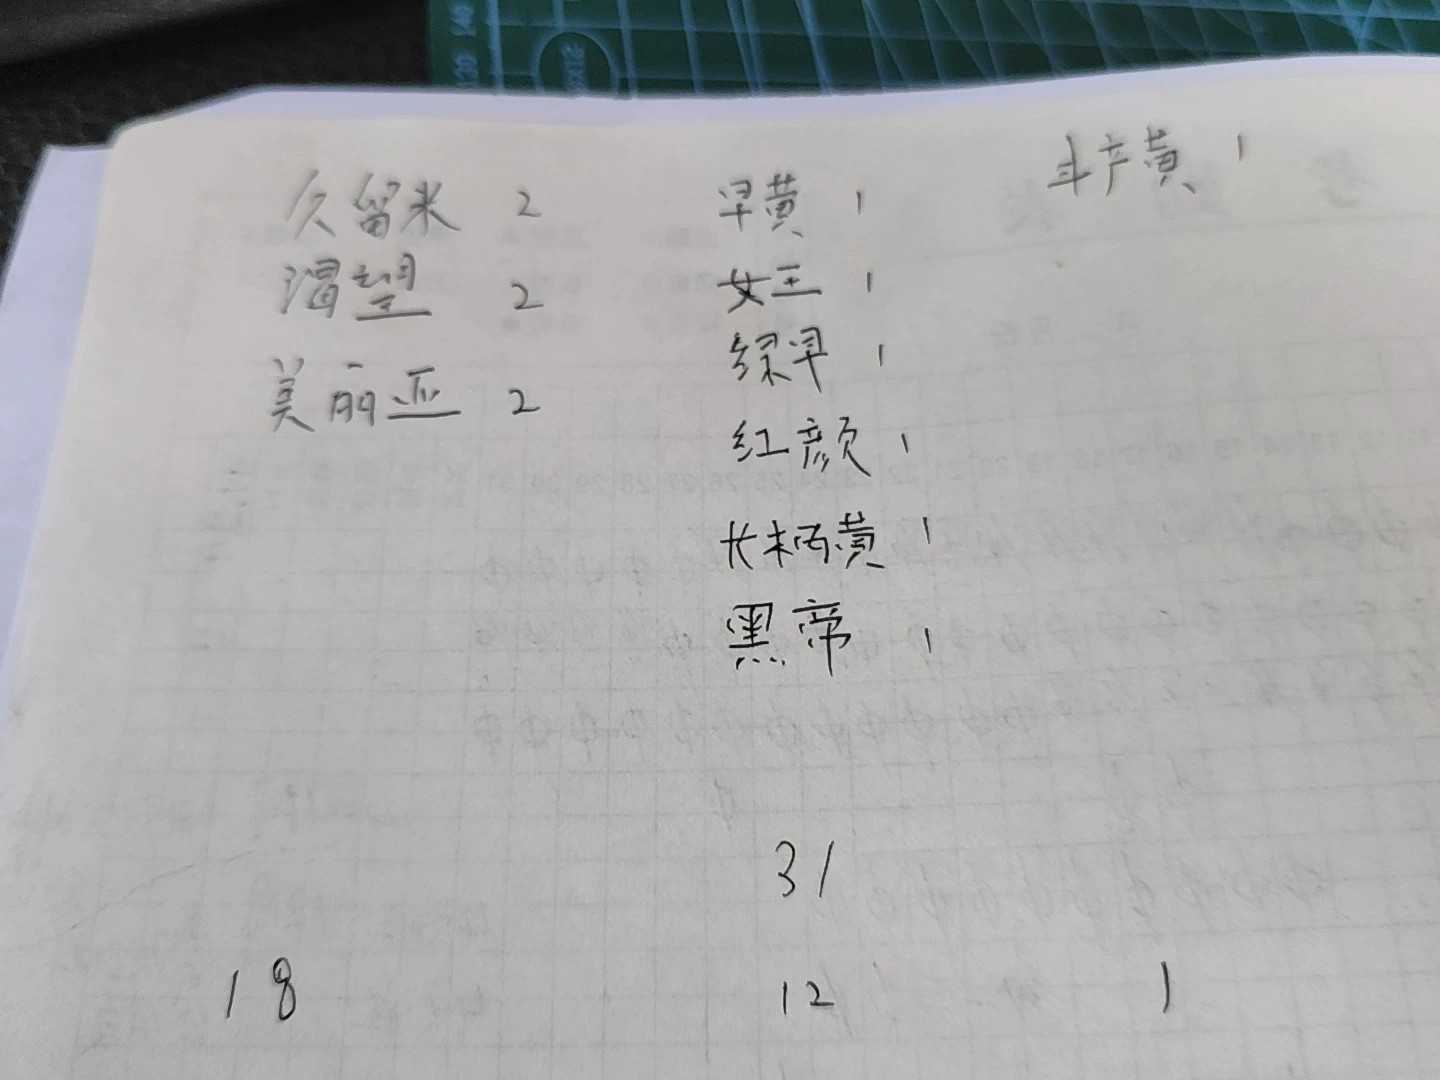 久留米 2
渴望 2
美丽亚 2
早黄 1
女王 1
绿早 1
红颜 1
长柄黄 1
黑帝 1
斗产黄 1
31
18 12 1